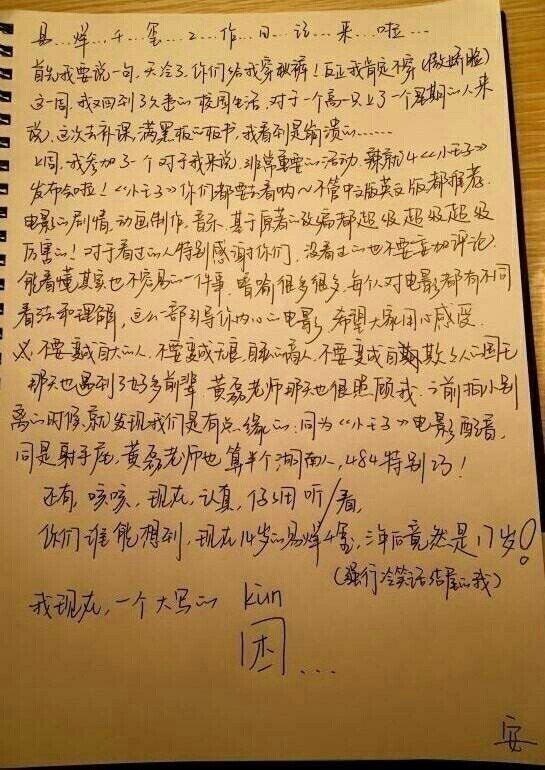 易…烊…千…玺…工…作…日…记…来…啦…
首先我要说一句,天冷了,你们给我穿秋裤!反正我肯定不穿(傲娇脸)
这一周,我又回到了久违的校园生活,对于一个高一只上了一个星期的人来
说,这次去补课,满黑板的板书,我看到是崩溃的……
上周,我参加了一个对于我来说,非常重要的活动,那就是《小王子》
发布会啦!《小王子》你们都要去看哟~不管中文版英文版都推荐.
电影的剧情,动画制作,音乐,基于原著的改编都超级超级超级
厉害的!对于看过的人特别感谢你们,没看过的也不要妄加评论,
能看懂其实也不容易的一件事,暗喻很多很多,每个人对电影都有不同
看法和理解,这么一部引导你内心的电影,希望大家用心感受.
不要变成自大的人,不要变成无良商人,不要变成自欺欺人的国王
那天也遇到了好多前辈,黄磊老师那天也很照顾我,之前拍小别
离的时候,就发现我们是有点缘的:同为《小王子》电影配音,
同是射手座,黄磊老师也算半个湖南人,484特别巧!
还有,咳咳,现在,认真,仔细听/看,
你们谁能想到,现在14岁的易烊千玺,三年后竟然是17岁!
(强行冷笑话结尾的我)
我现在,一个大写的 kùn
困…
安